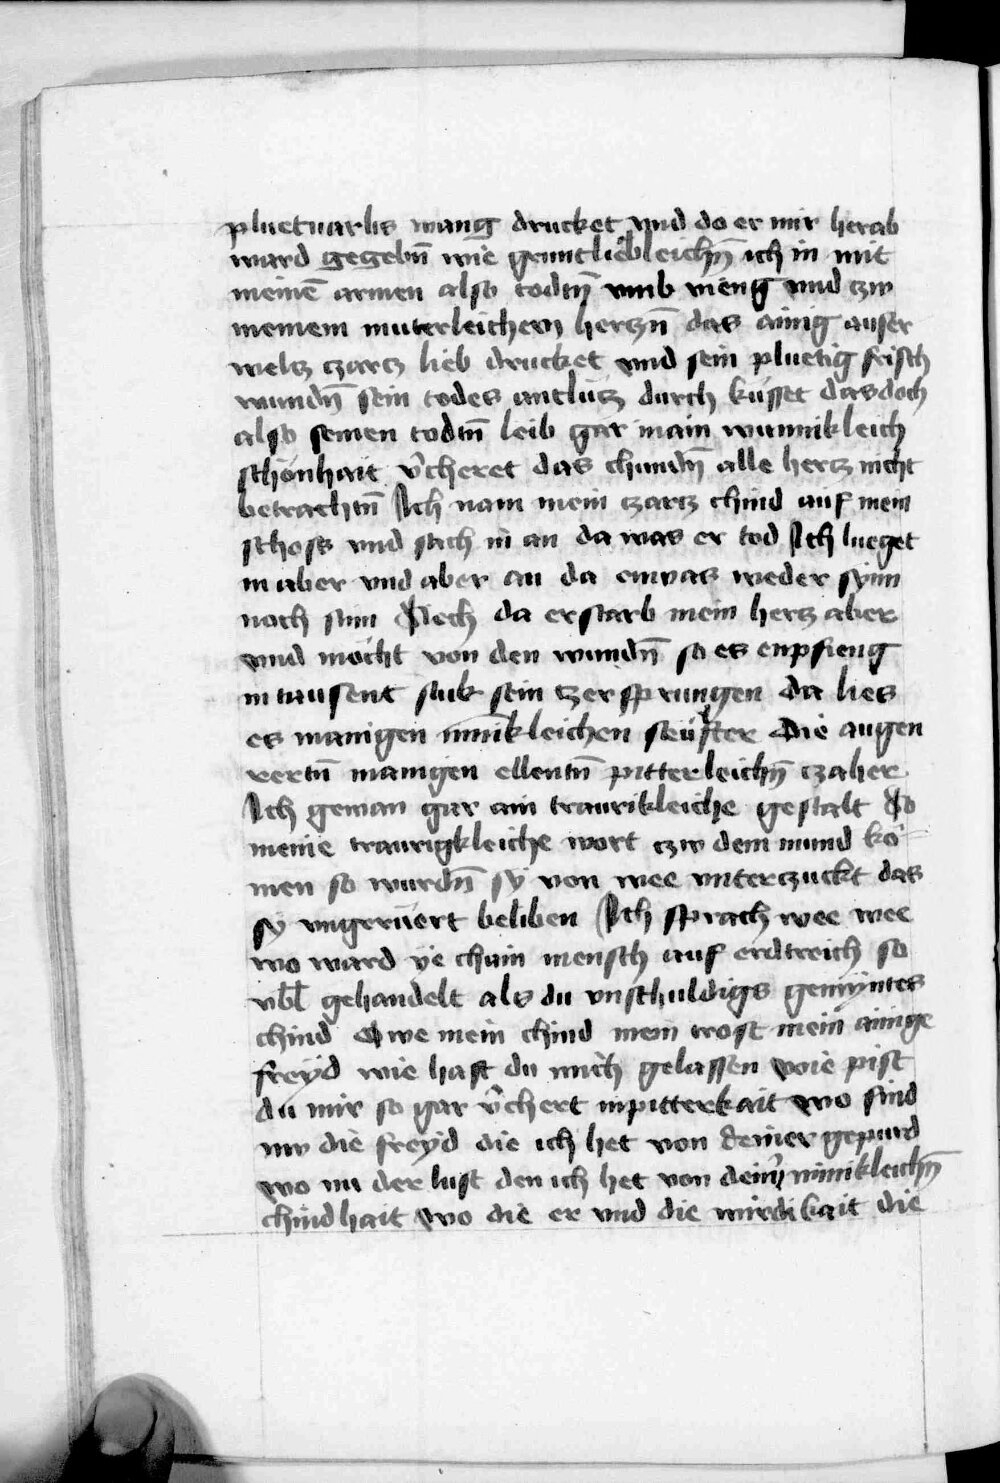 pluetuarbs wang drucket vnd do er mir herab
ward gegebn̄ wie gruntlieblleichn̄ ich in mit
meinē armen also todtn̄ vmb vieng vnd czw
meinem muterleichen hertzn̄ das ainig auser
weltz czartz lieb drucket vnd sein pluetig frisch
wundn̄ sein todes antlütz durch küsset das doch
also seinen todtn̄ leib gar main wunnikleich
schönhait v̄cheret das chundn̄ alle hertz nicht
betrachtn̄ Ich nam mein czartz chind auf mein
schoss vnd sach in an da was er tod Ich lueget
in aber vnd aber an da enwas weder synn
noch stim Sech da erstarb mein hertz aber
vnd möcht von den wundn̄ so es enpfieng
in tausent stuk sein tzersprungen da lies
es manigen innikleichen seüfter Die augen
rertn̄ manigen ellentn̄ pitterleichn̄ czaher
Ich gewan gar ain traurikleiche gestalt So
meine traurigkleiche wort czw dem mund kö-
men so wurdn̄ sy von wee vnterczuckt das
sy vngerüert beliben Ich sprach wee wee
wo ward ye chain mensch auf erdtreich so
vbl̄ gehandelt als du vnschuldigs gemyntes
chind Owe mein chind mein trost mein ainige
freyd wie hast du mich gelassen wie pist
du mir so gar v̄chert in pitterkait wo sind
nw die freyd die ich het von deiner gepurd
wo nu der lust den ich het von dein̄ minikleichn̄
chindhait wo die er vnd die wirdikait die